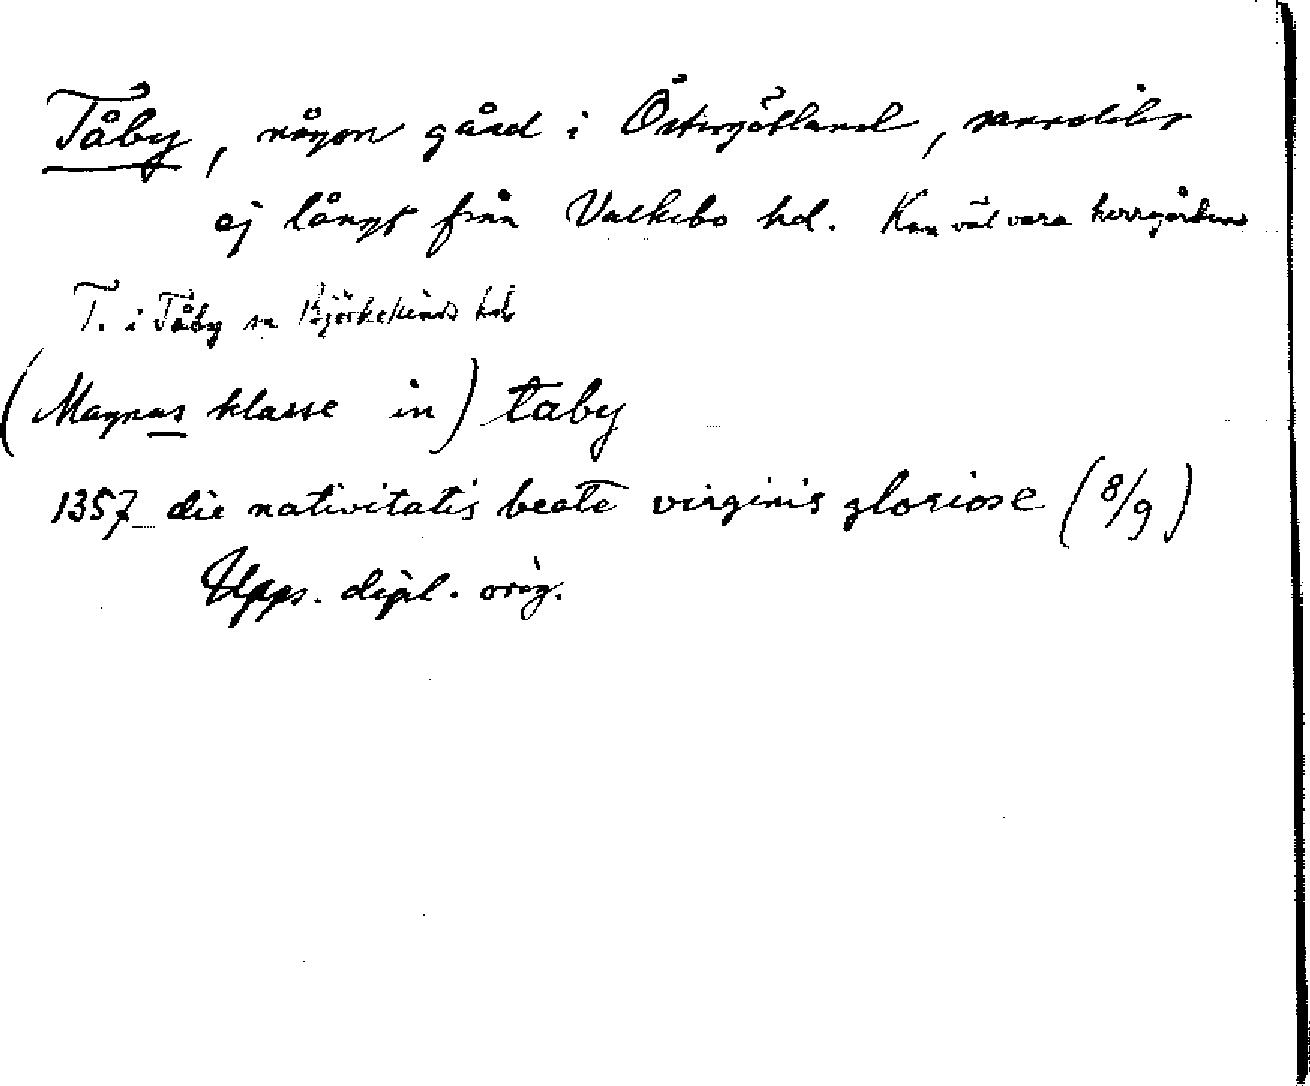 Tåby, någon gård i Östergötland, sannolikt
ej långt från Valkebo hd. Kan väl vara herrgården
T. i Tåby sn Björkekinds hd
(Magnus klasse in) taby
1357 die nativitatis beate virginis gloriose (8/9)
Upps. dipl. orig.